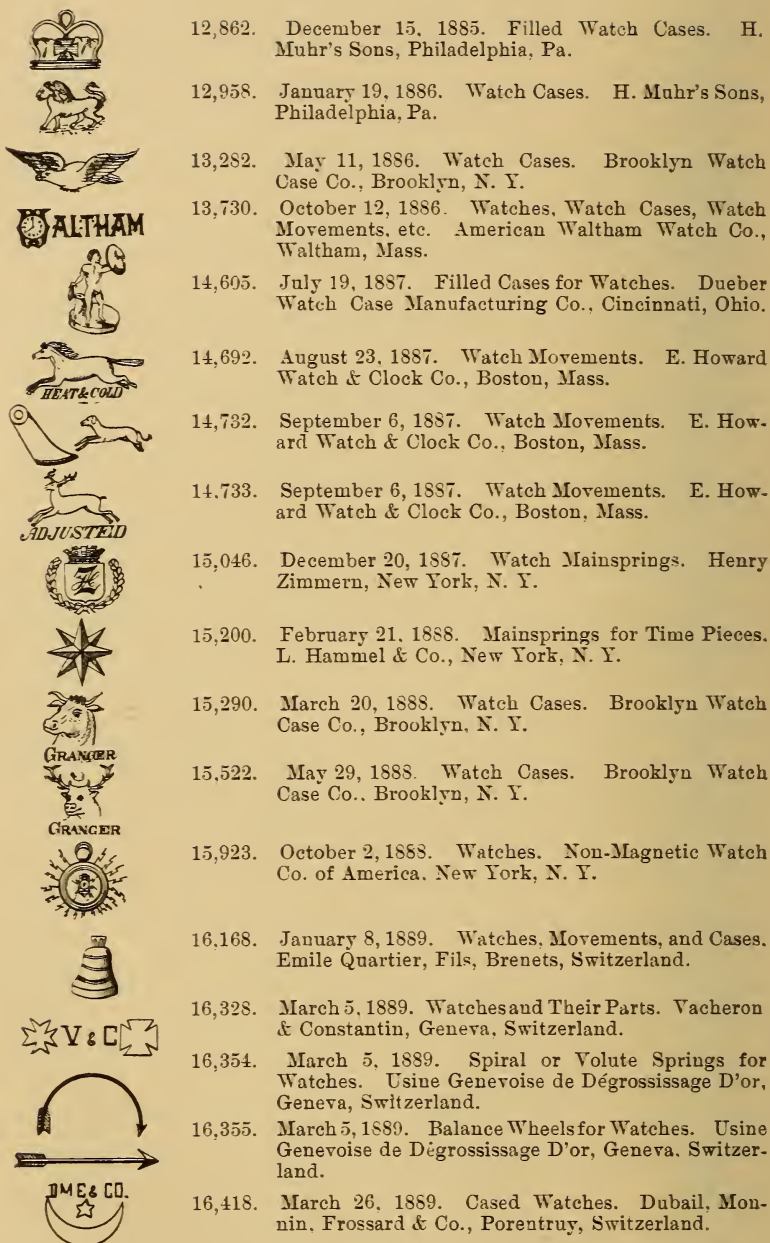 12,862. December 15, 1885. Filled Watch Cases. H.
Muhr's Sons, Philadelphia, Pa.
12,958. January 19, 1886. Watch Cases. H. Muhr's Sons,
Philadelphia, Pa.
13,282. May 11, 1886. Watch Cases. Brooklyn Watch
Case Co., Brooklyn, N. Y.
WALTHAM
13,730. October 12, 1886. Watches, Watch Cases, Watch
Movements, etc. American Waltham Watch Co.,
Waltham, Mass.
14,605. July 19, 1887. Filled Cases for Watches. Dueber
Watch Case Manufacturing Co., Cincinnati, Ohio.
14,692. August 23, 1887. Watch Movements. E. Howard
Watch & Clock Co., Boston, Mass.
HEAT & COLD
14,732. September 6, 1887. Watch Movements. E. How-
ard Watch & Clock Co., Boston, Mass.
14,733. September 6, 1887. Watch Movements. E. How-
ard Watch & Clock Co., Boston, Mass.
ADJUSTED
15,046. December 20, 1887. Watch Mainsprings. Henry
Zimmern, New York, N. Y.
Z
15,200. February 21, 1888. Mainsprings for Time Pieces.
L. Hammel & Co., New York, N. Y.
15,290. March 20, 1888. Watch Cases. Brooklyn Watch
Case Co., Brooklyn, N. Y.
GRANGER
15,522. May 29, 1888. Watch Cases. Brooklyn Watch
Case Co., Brooklyn, N. Y.
GRANGER
15,923. October 2, 1888. Watches. Non-Magnetic Watch
Co. of America, New York, N. Y.
16,168. January 8, 1889. Watches, Movements, and Cases.
Emile Quartier, Fils, Brenets, Switzerland.
16,328. March 5, 1889. Watches and Their Parts. Vacheron
& Constantin, Geneva, Switzerland.
V & C
16,354. March 5, 1889. Spiral or Volute Springs for
Watches. Usine Genevoise de Dégrossissage D'or,
Geneva, Switzerland.
16,355. March 5, 1889. Balance Wheels for Watches. Usine
Genevoise de Dégrossissage D'or, Geneva, Switzer-
land.
DME & CO.
16,418. March 26, 1889. Cased Watches. Dubail, Mon-
nin, Frossard & Co., Porentruy, Switzerland.